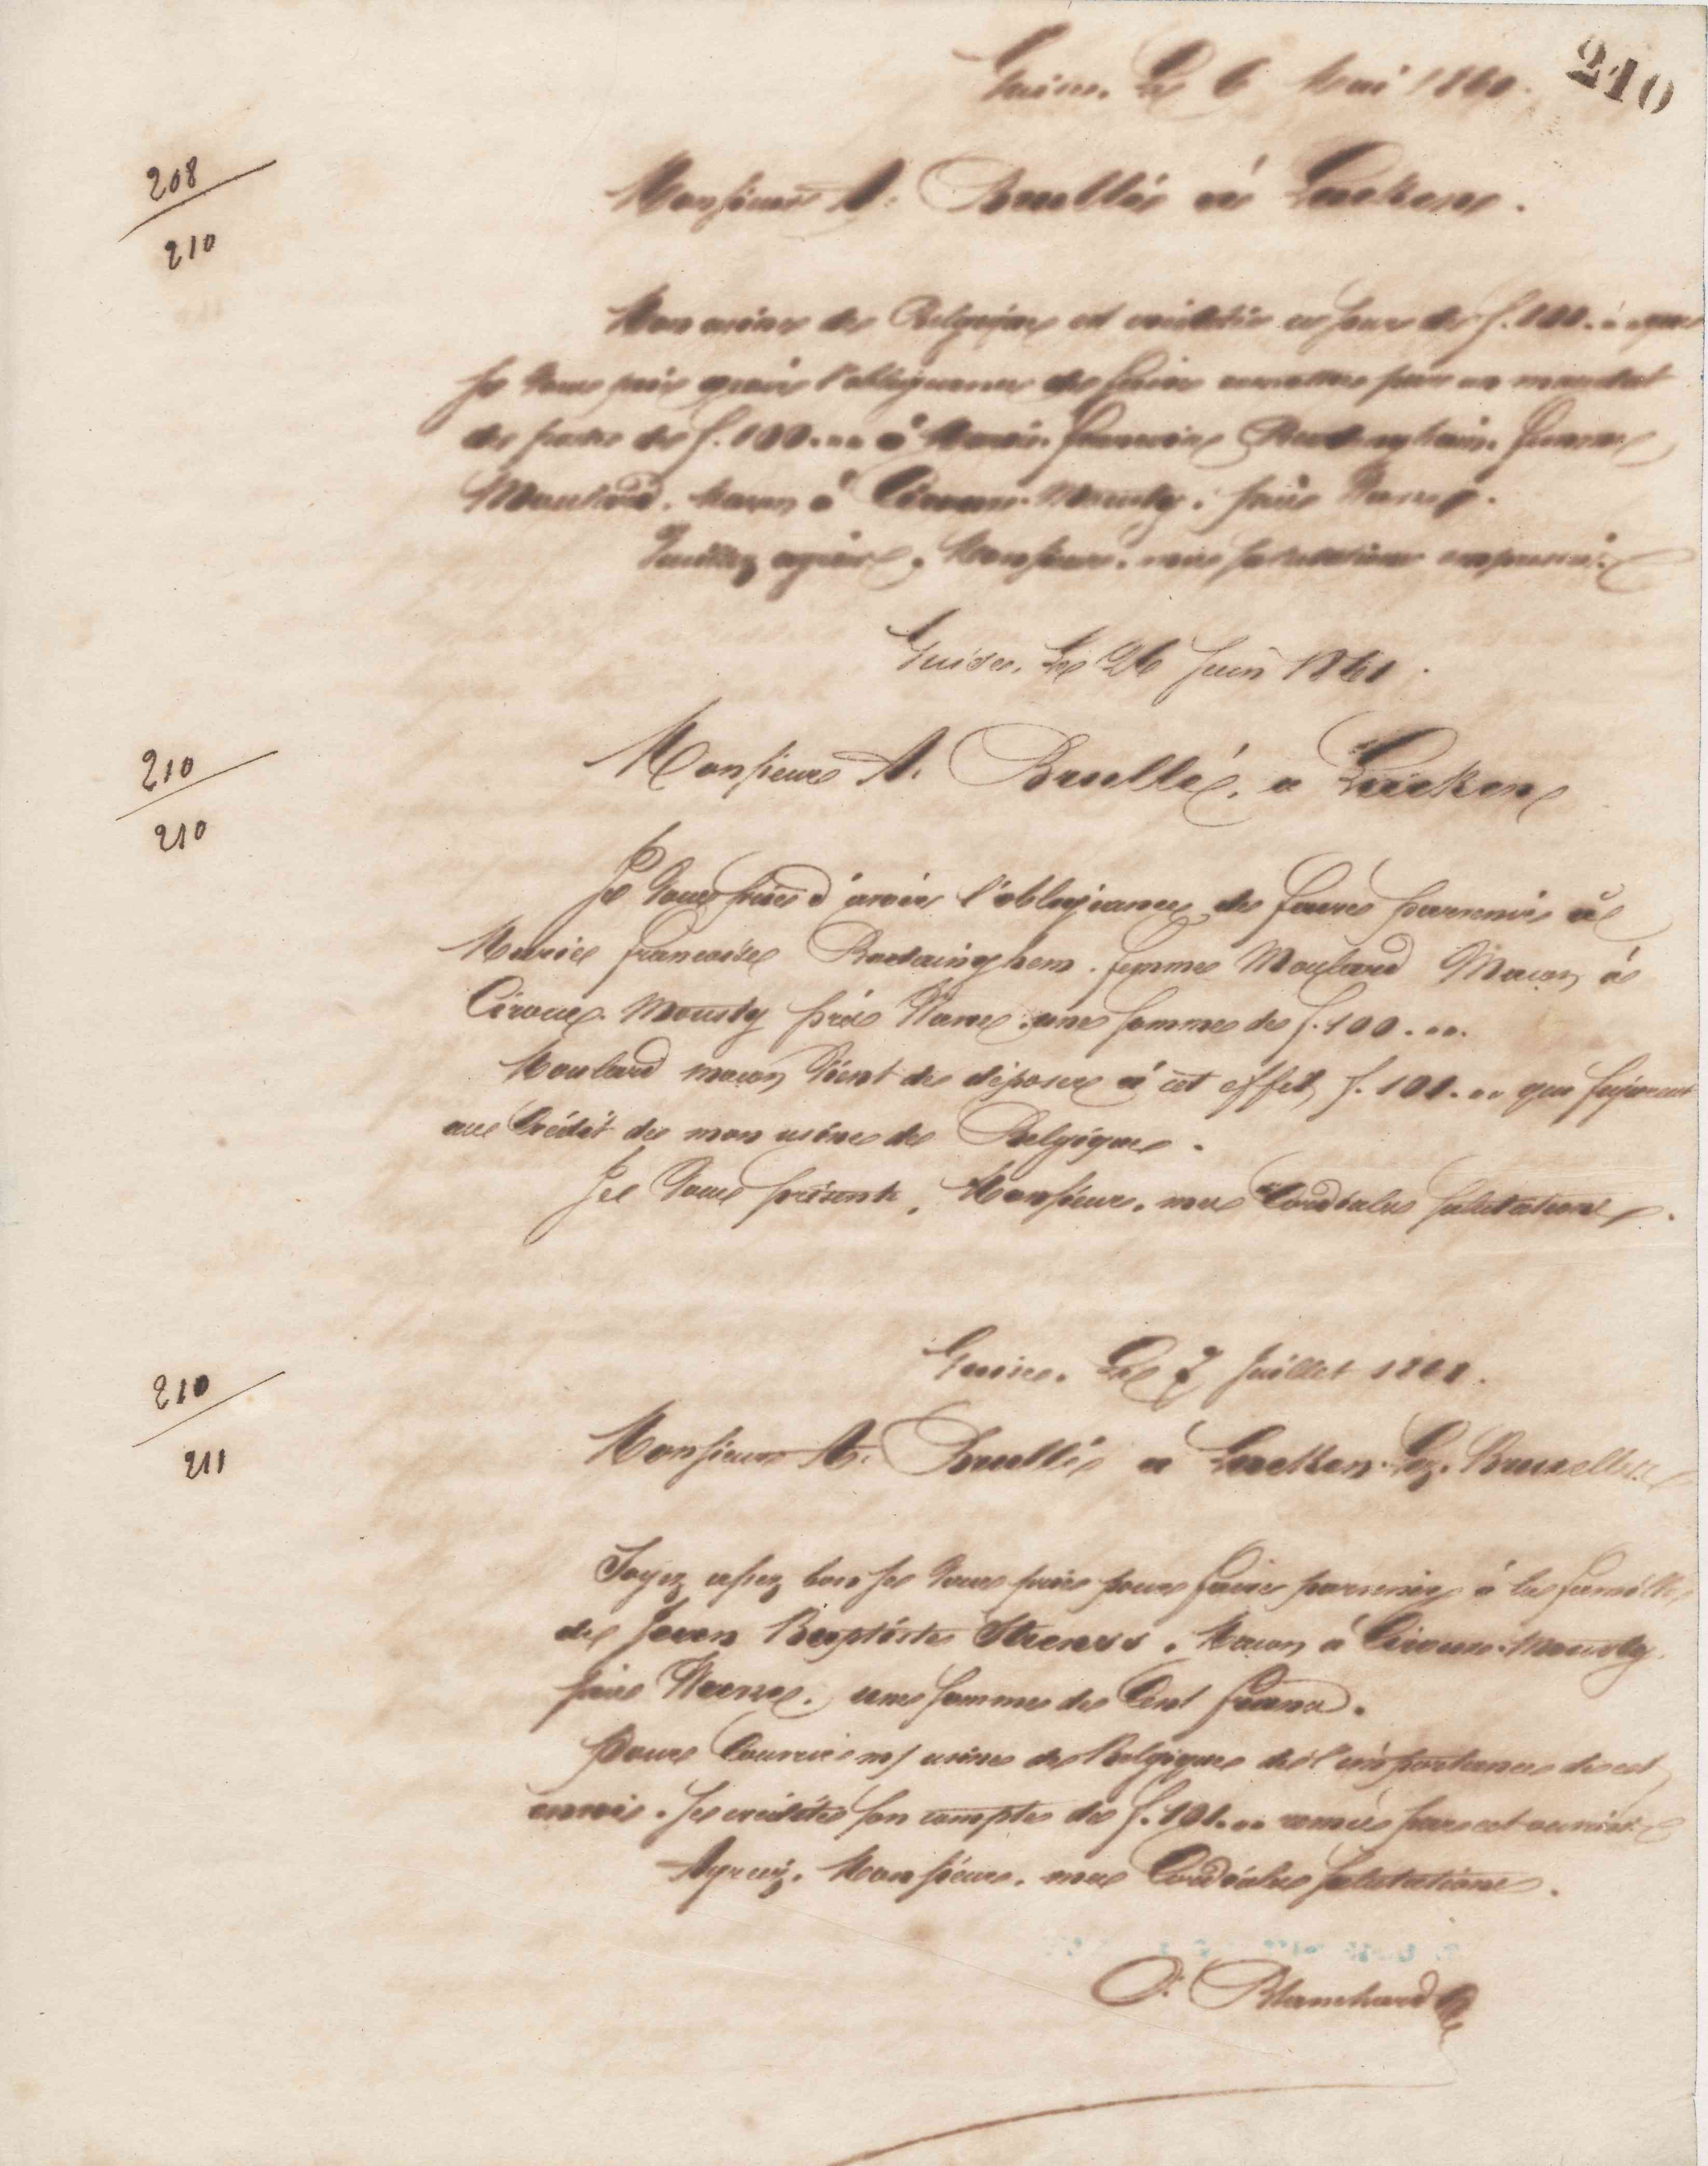 210
Guise, Le 6 Mai 1860.
208
210
Monsieur A. Brullé à Laeken.
Mon usine de Belgique est créditée ce jour de f. 101. " que
je vous prie avoir l'obligeance de faire remettre par un mandat
de poste de f. 100. " " à Marie Francoise femme
Moulard, Macon à Ceroux-Mousty, près Wavre.
Veuillez agréer, Monsieur, mes salutations empressées
Guise, Le 26 Juin 1861.
210
210
Monsieur A. Brullé, à Laeken
Je vous prie d'avoir l'obligeance de faire parvenir à
Marie francoise femme Moulard Macon à
Ceroux-Mousty près Wavre une somme de f. 100. " "
Moulard macon vient de déposer à cet effet, f. 101. " " que je porte
au Crédit de mon usine de Belgique.
Je vous présente, Monsieur, mes Cordiales salutations.
Guise, Le 7 Juillet 1861.
210
211
Monsieur A. Brullé à Laeken-Lez-Bruxelles
Soyez assez bon je vous prie pour faire parvenir à la famille
de Jean Baptiste, Macon à Ceroux-Mousty,
près Wavre, une somme de Cent francs.
Pour Couvrir m/ usine de Belgique de l'importance de cet
envoi, je crédite son compte de f. 101. " " remis par cet ouvrier
Agréez, Monsieur, mes Cordiales salutations.
Blanchard